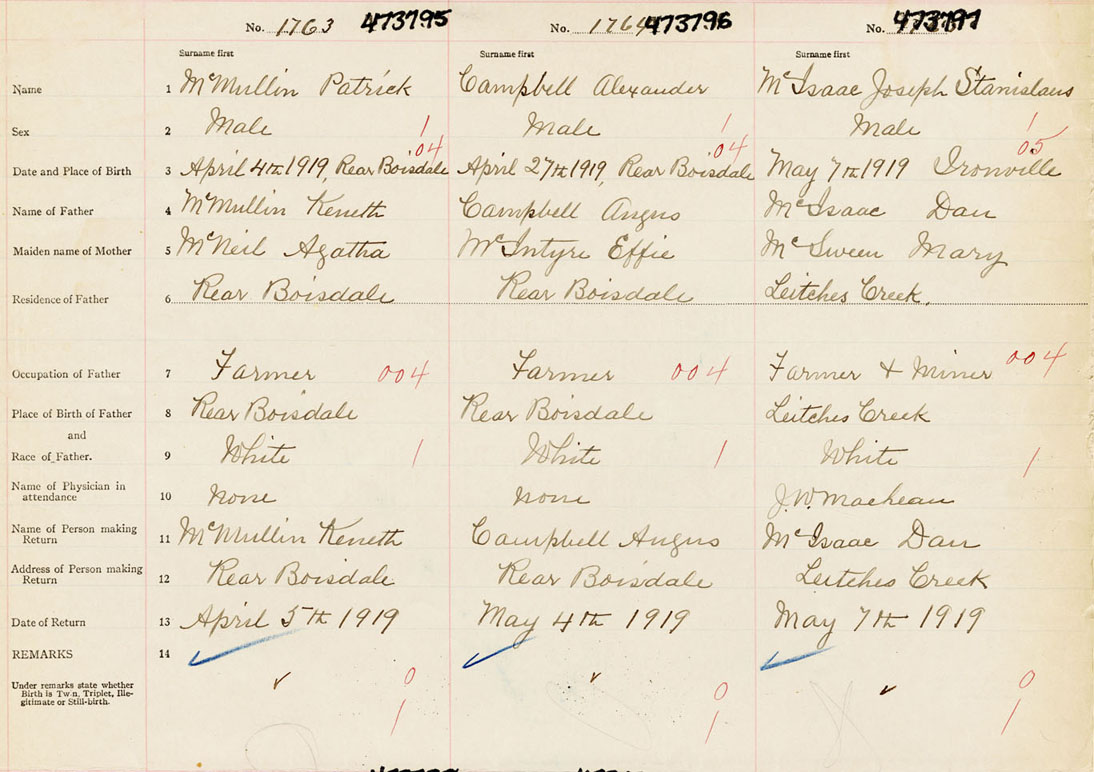 No. 1763 473795 No. 1764 473796 No. 473797
Surname first Surname first Surname first
Name 1 McMullin Patrick Campbell Alexander McIsaac Joseph Stanislaus
Sex 2 Male 1 Male 1 Male 1
04 04 05
Date and Place of Birth 3 April 4th 1919, Rear Boisdale April 27th 1919, Rear Boisdale May 7th 1919 Ironville
Name of Father 4 McMullin Keneth Campbell Angus McIsaac Dan
Maiden name of Mother 5 McNeil Agatha McIntyre Effie McSween Mary
Residence of Father 6 Rear Boisdale Rear Boisdale Leitches Creek.
Occupation of Father 7 Farmer 004 Farmer 004 Farmer + Miner 004
Place of Birth of Father 8 Rear Boisdale Rear Boisdale Leitches Creek
and
Race of Father. 9 White 1 White 1 White 1
Name of Physician in
attendance 10 none none J.W. MacLean
Name of Person making
Return 11 McMullin Keneth Campbell Angus McIsaac Dan
Address of Person making
Return 12 Rear Boisdale Rear Boisdale Leitches Creek
Date of Return 13 April 5th 1919 May 4th 1919 May 7th 1919
REMARKS 14
Under remarks state whether 0 0 0
Birth is Twn, Triplet, Ille-
gitimate or Still-birth. 1 1 1